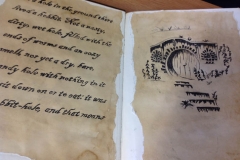 a hole in the ground there
lived a hobbit. Not a nasty,
dirty, wet hole, filled with the
ends of worms and an oozy
smell, nor yet a dry, bare,
sandy hole with nothing in it
to sit down on or to eat: it was
hobbit-hole, and that means